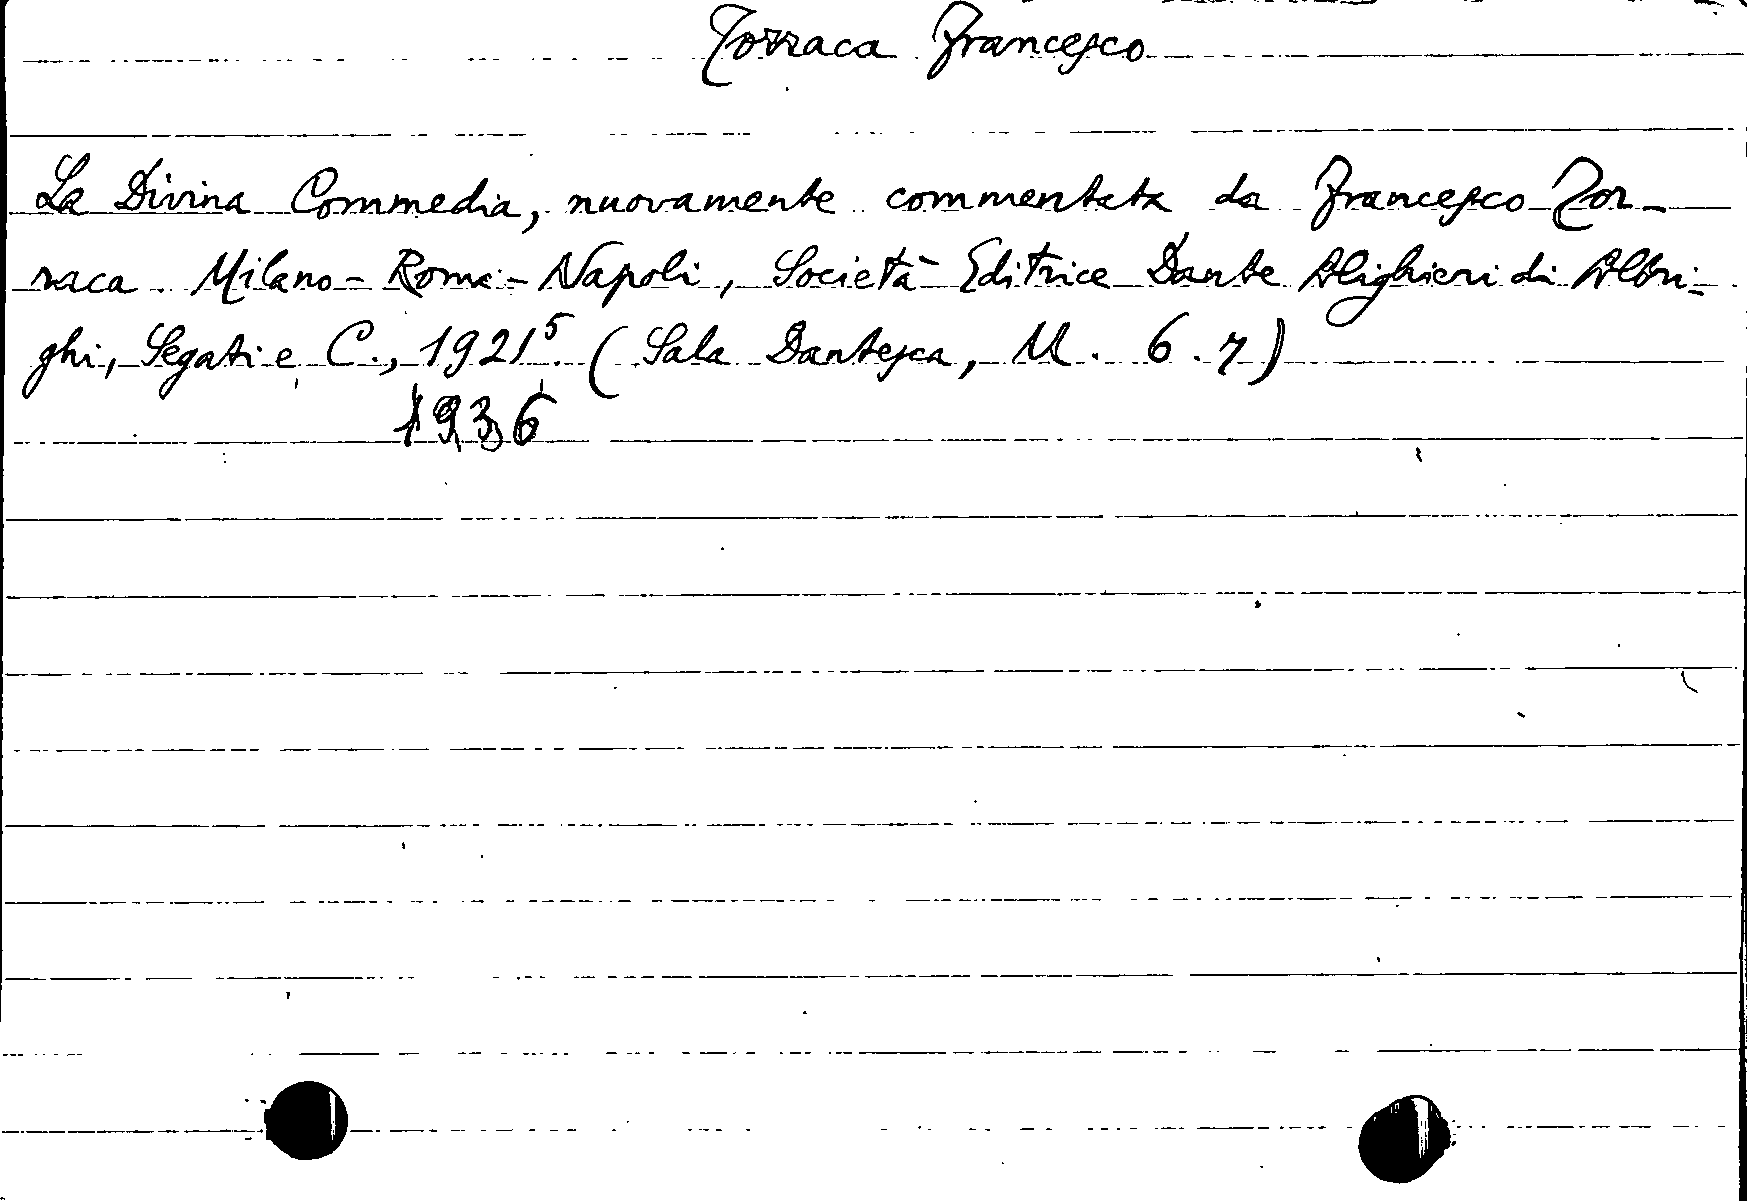 Torraca Francesco
La Divina Commedia, nuovamente commentata da Francesco Tor-
raca. Milano-Roma-Napoli, Società Editrice Dante Alighieri di Albri-
ghi, Segati e C., 1921⁵. (Sala Dantesca, M. 6. 7)
1936